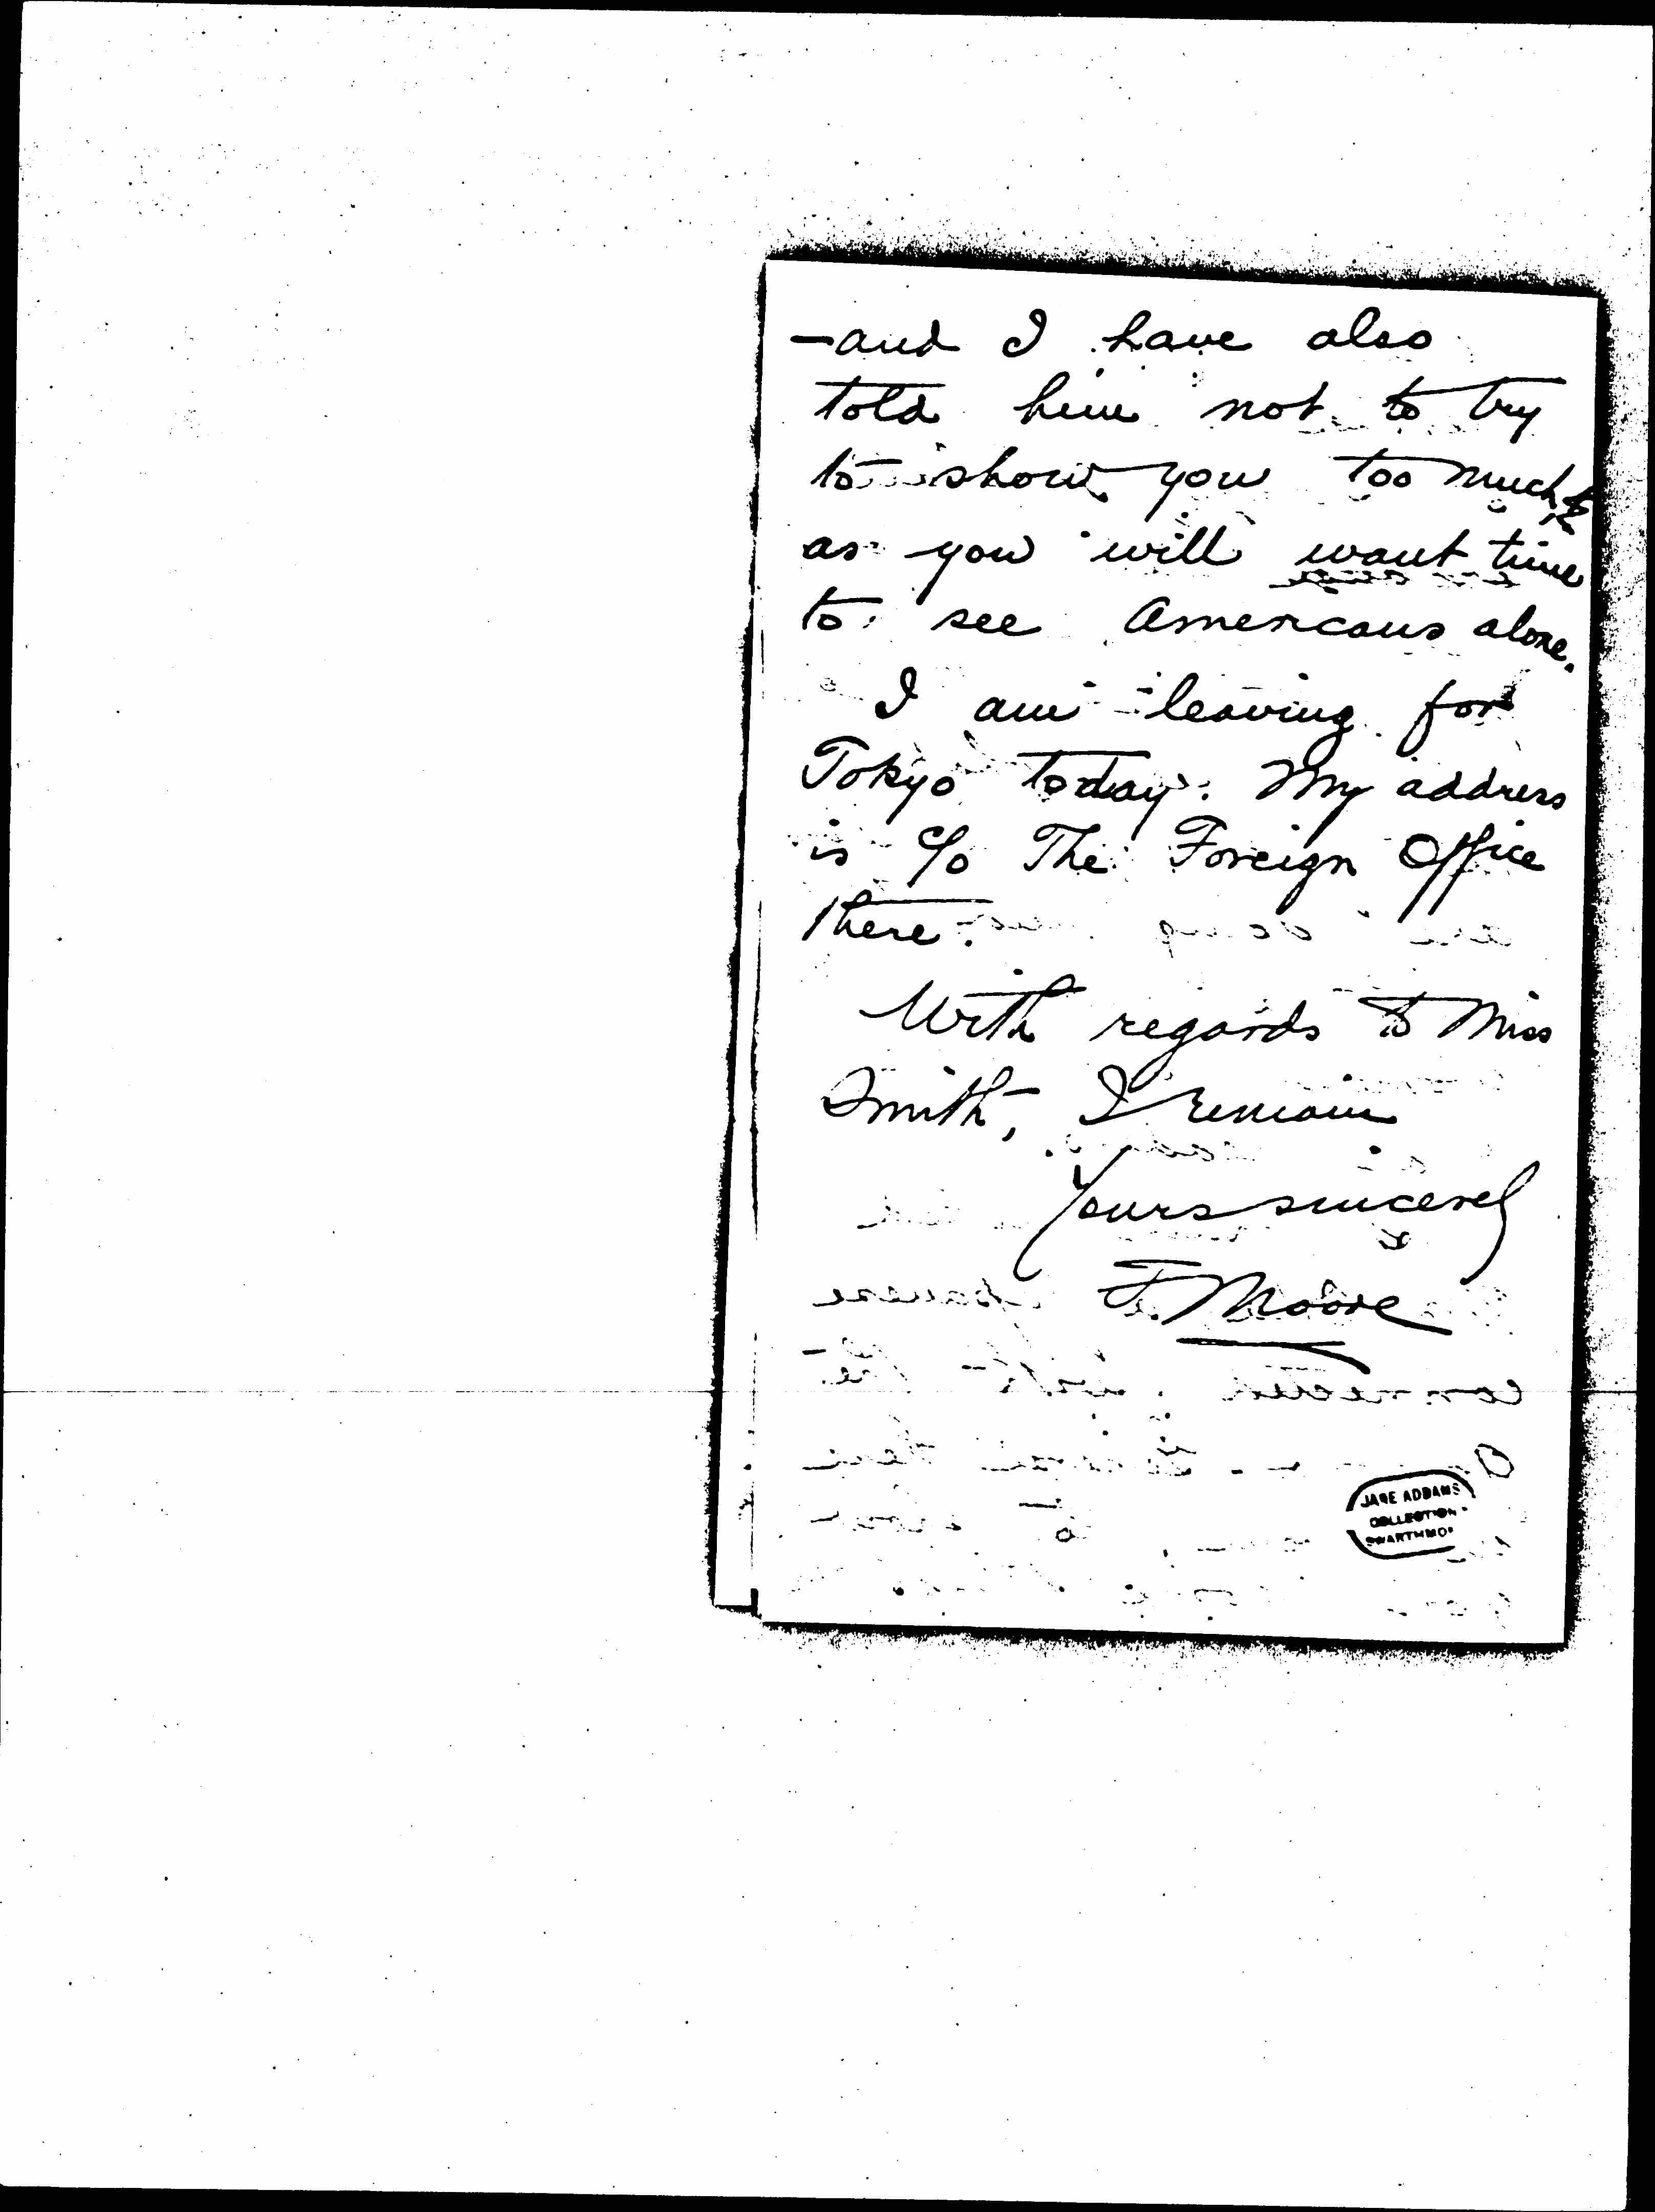 —and I have also
told him not to try
to show you too much
as you will want time
to see Americans alone.
I am leaving for
Tokyo today. My address
is c/o The Foreign Office
there.
With regards to Miss
Smith, I remain
Yours sincerely
F. Moore
JANE ADDAMS
COLLECTION
SWARTHMO